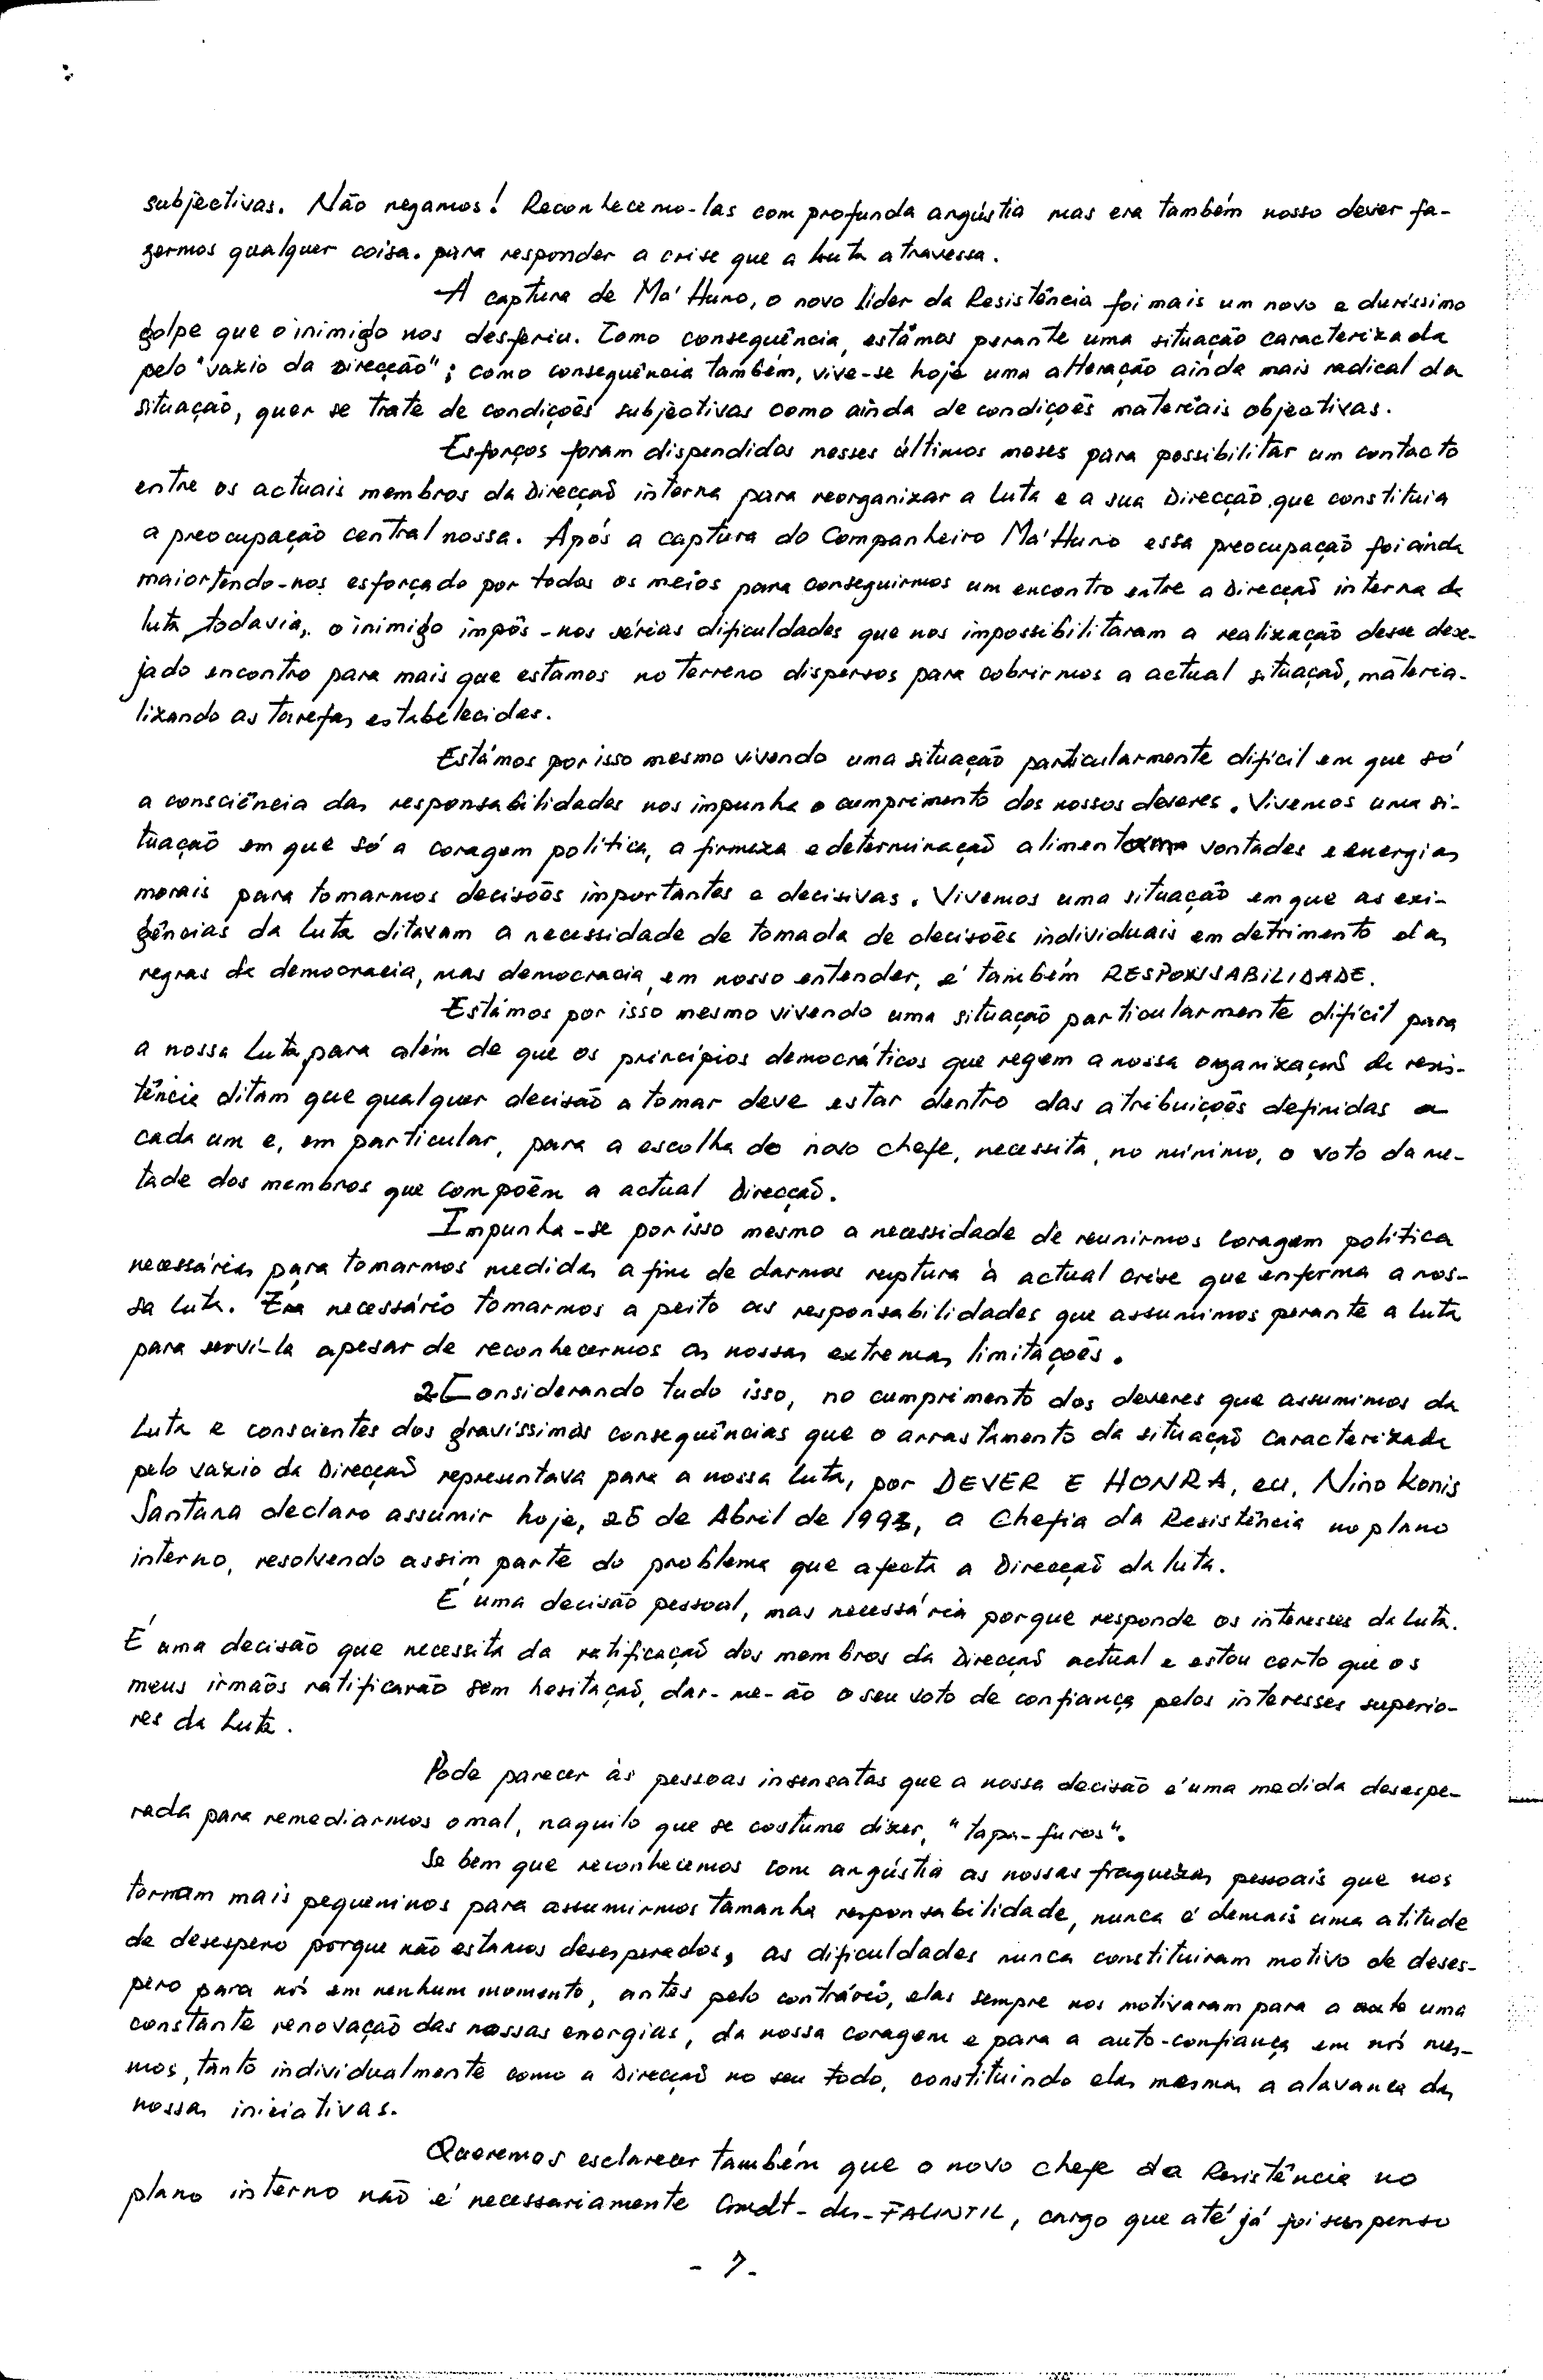 subjectivas. Não negamos! Reconhecemo-las com profunda angústia mas era também nosso dever fa-
zermos qualquer coisa. para responder a crise que a luta atravessa.
A captura de Ma'Huno, o novo líder da Resistência foi mais um novo e duríssimo
golpe que o inimigo nos desferiu. Como consequência, estámos perante uma situação caracterizada
pelo "vazio da Direcção"; como consequência também, vive-se hoje uma alteração ainda mais radical da
situação, quer se trate de condições subjectivas como ainda de condições materiais objectivas.
Esforços foram dispendidos nesses últimos meses para possibilitar um contacto
entre os actuais membros da Direcção interna para reorganizar a luta e a sua Direcção, que constituia
a preocupação central nossa. Após a captura do Companheiro Ma'Huno essa preocupação foi ainda
maior tendo-nos esforçado por todos os meios para conseguirmos um encontro entre a Direcção interna da
luta, todavia, o inimigo impôs-nos sérias dificuldades que nos impossibilitaram a realização desse dese-
jado encontro para mais que estamos no terreno dispersos para cobrirmos a actual situação, materia-
lizando as tarefas estabelecidas.
Estámos por isso mesmo vivendo uma situação particularmente difícil em que só
a consciência das responsabilidades nos impunha o cumprimento dos nossos deveres. Vivemos uma si-
tuação em que só a coragem política, a firmeza e determinação alimentam vontades e energias
morais para tomarmos decisões importantes e decisivas. Vivemos uma situação em que as exi-
gências da luta ditavam a necessidade de tomada de decisões individuais em detrimento das
regras da democracia, mas democracia, em nosso entender, é também RESPONSABILIDADE.
Estámos por isso mesmo vivendo uma situação particularmente difícil para
a nossa luta, para além de que os princípios democráticos que regem a nossa organização de resis-
tência ditam que qualquer decisão a tomar deve estar dentro das atribuições definidas a
cada um e, em particular, para a escolha do novo chefe, necessita, no mínimo, o voto da me-
tade dos membros que compõem a actual Direcção.
Impunha-se por isso mesmo a necessidade de reunirmos coragem política
necessárias para tomarmos medidas a fim de darmos ruptura à actual crise que enferma a nos-
sa luta. Era necessário tomarmos a peito as responsabilidades que assumimos perante a luta
para serví-la apesar de reconhecermos as nossas extremas limitações.
Considerando tudo isso, no cumprimento dos deveres que assumimos da
luta e conscientes das gravíssimas consequências que o arrastamento da situação caracterizada
pelo vazio da Direcção representava para a nossa luta, por DEVER E HONRA, eu, Nino Konis
Santana declaro assumir hoje, 25 de Abril de 1993, a Chefia da Resistência no plano
interno, resolvendo assim parte do problema que afecta a Direcção da luta.
É uma decisão pessoal, mas necessária porque responde os interesses da luta.
É uma decisão que necessita da ratificação dos membros da Direcção actual e estou certo que os
meus irmãos ratificarão sem hesitação, dar-me-ão o seu voto de confiança pelos interesses superio-
res da luta.
Pode parecer às pessoas insensatas que a nossa decisão é uma medida desespe-
rada para remediarmos o mal, naquilo que se costuma dizer, "tapa-furos".
Se bem que reconhecemos com angústia as nossas fraquezas pessoais que nos
tornam mais pequeninos para assumirmos tamanha responsabilidade, nunca é demais uma atitude
de desespero porque não estamos desesperados, as dificuldades nunca constituiram motivo de deses-
pero para nós em nenhum momento, antes pelo contrário, elas sempre nos motivaram para a uma
constante renovação das nossas energias, da nossa coragem e para a auto-confiança em nós mes-
mos, tanto individualmente como a Direcção no seu todo, constituindo elas mesmas a alavanca das
nossas iniciativas.
Queremos esclarecer também que o novo chefe da Resistência no
plano interno não é necessariamente Cmdt-das-FALINTIL, cargo que até já foi suspenso
- 7 -